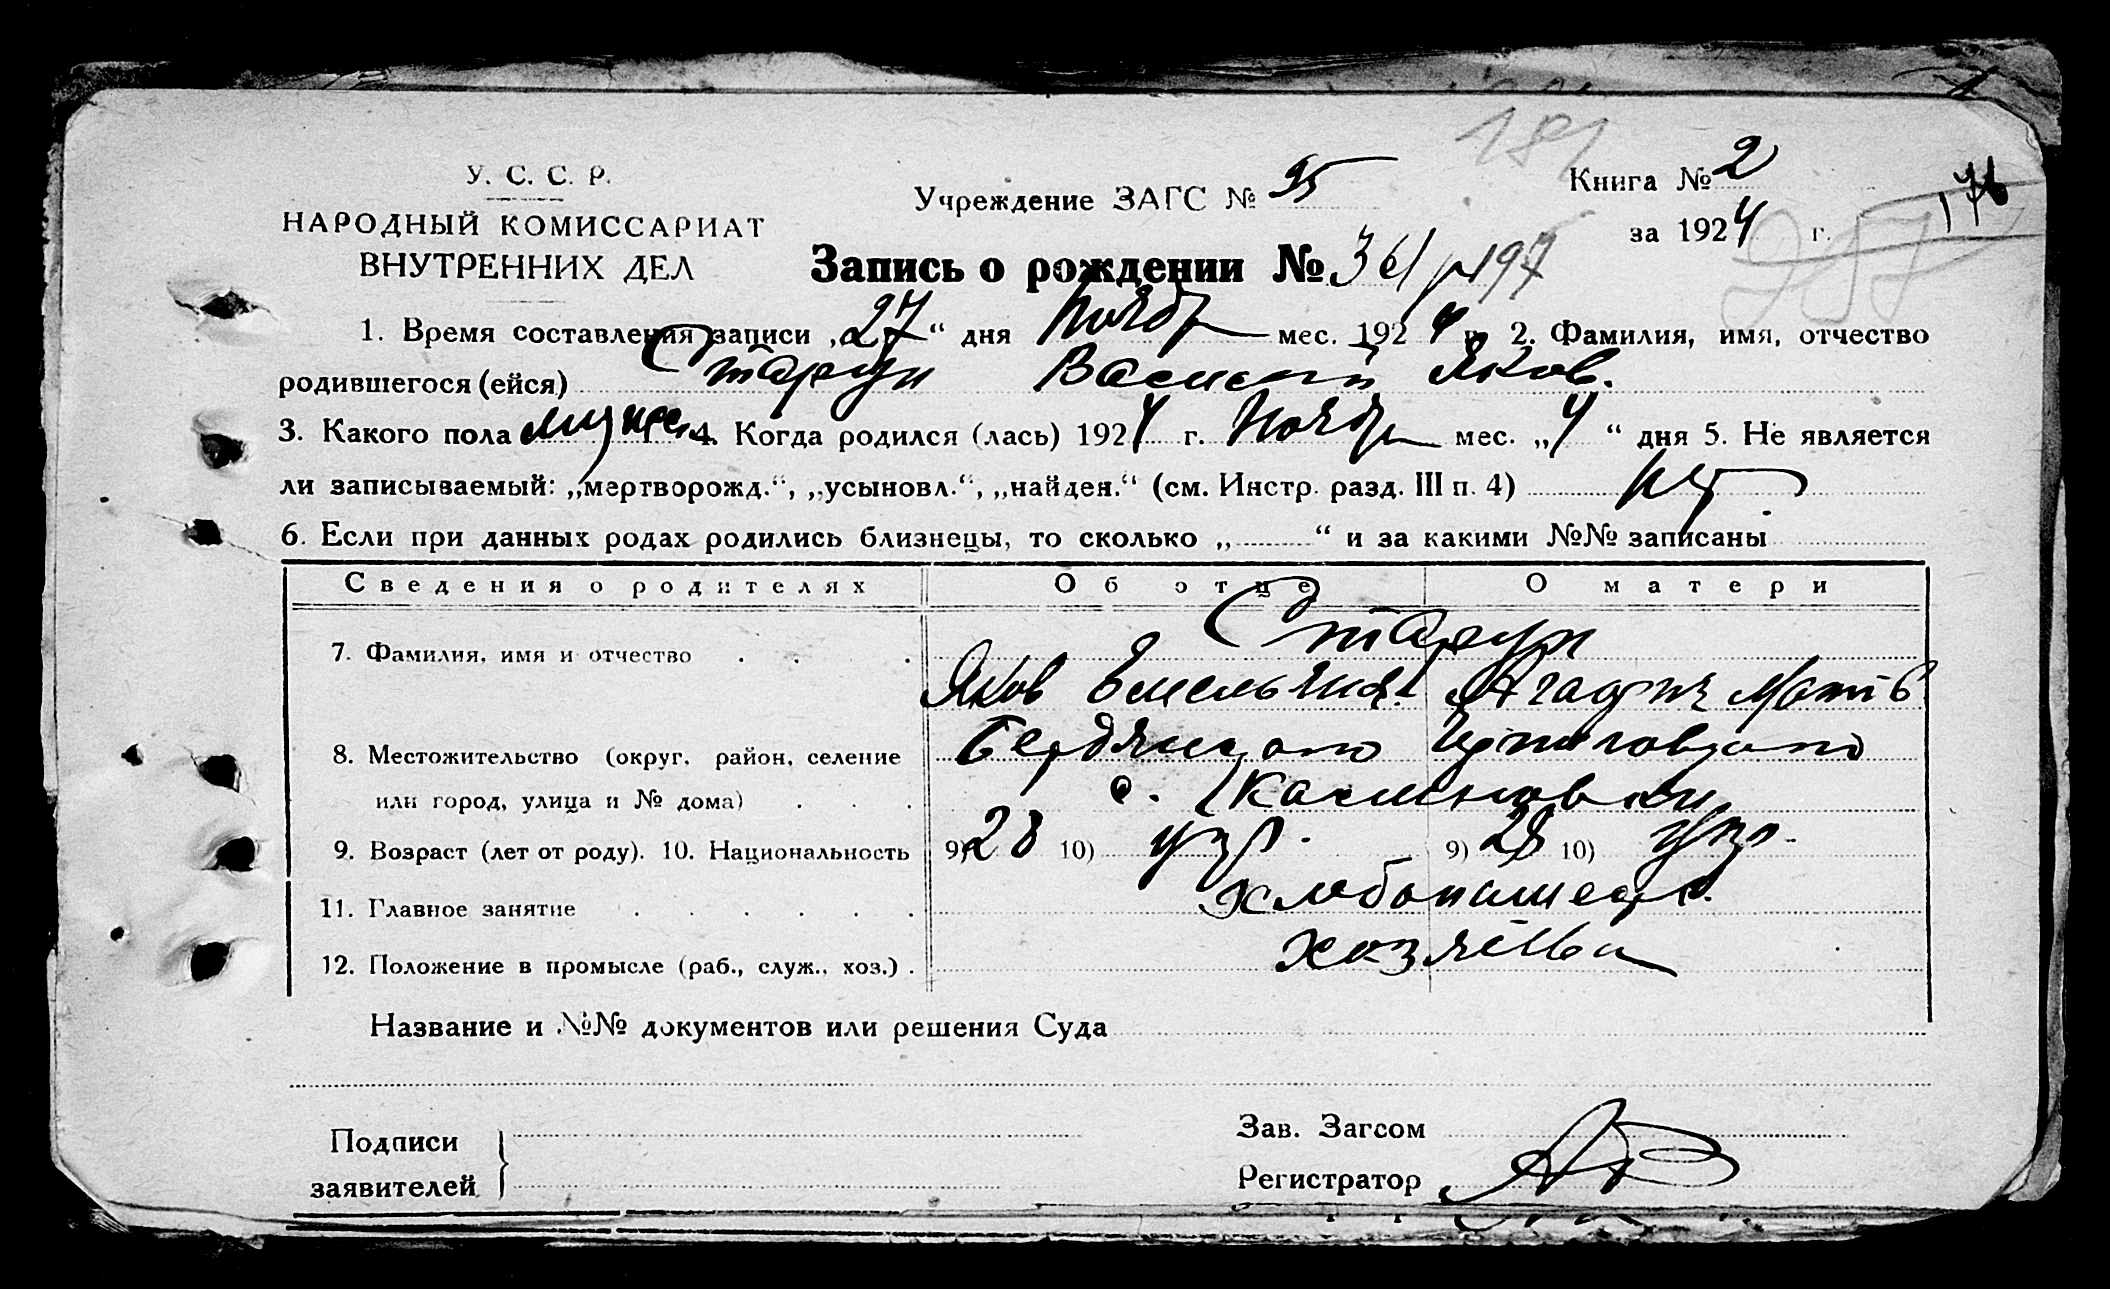 181
У. С. С. Р.
НАРОДНЫЙ КОМИССАРИАТ
ВНУТРЕННИХ ДЕЛ
Учреждение ЗАГС № 95
Книга № 2
176
за 1924 г.
257
Запись о рождении № 361/197
1. Время составления записи „27“ дня Ноябр мес. 1924 г. 2. Фамилия, имя, отчество
родившегося (ейся) Василий Яков.
3. Какого пола мужск. 4. Когда родился (лась) 1924 г. Ноябр мес. „4“ дня 5. Не является
ли записываемый: „мертворожд.“, „усыновл.“, „найден.“ (см. Инстр. разд. III п. 4) нет
6. Если при данных родах родились близнецы, то сколько „ “ и за какими №№ записаны
Сведения о родителях Об отце О матери
7. Фамилия, имя и отчество
Яков Емельян.
8. Местожительство (округ, район, селение Бердянского
или город, улица и № дома) с.
9. Возраст (лет от роду). 10. Национальность 9) 28 10) укр. 9) 28 10) укр.
11. Главное занятие хлебопашест.
12. Положение в промысле (раб., служ., хоз.) хозяева
Название и №№ документов или решения Суда
Подписи
заявителей
Зав. Загсом
Регистратор